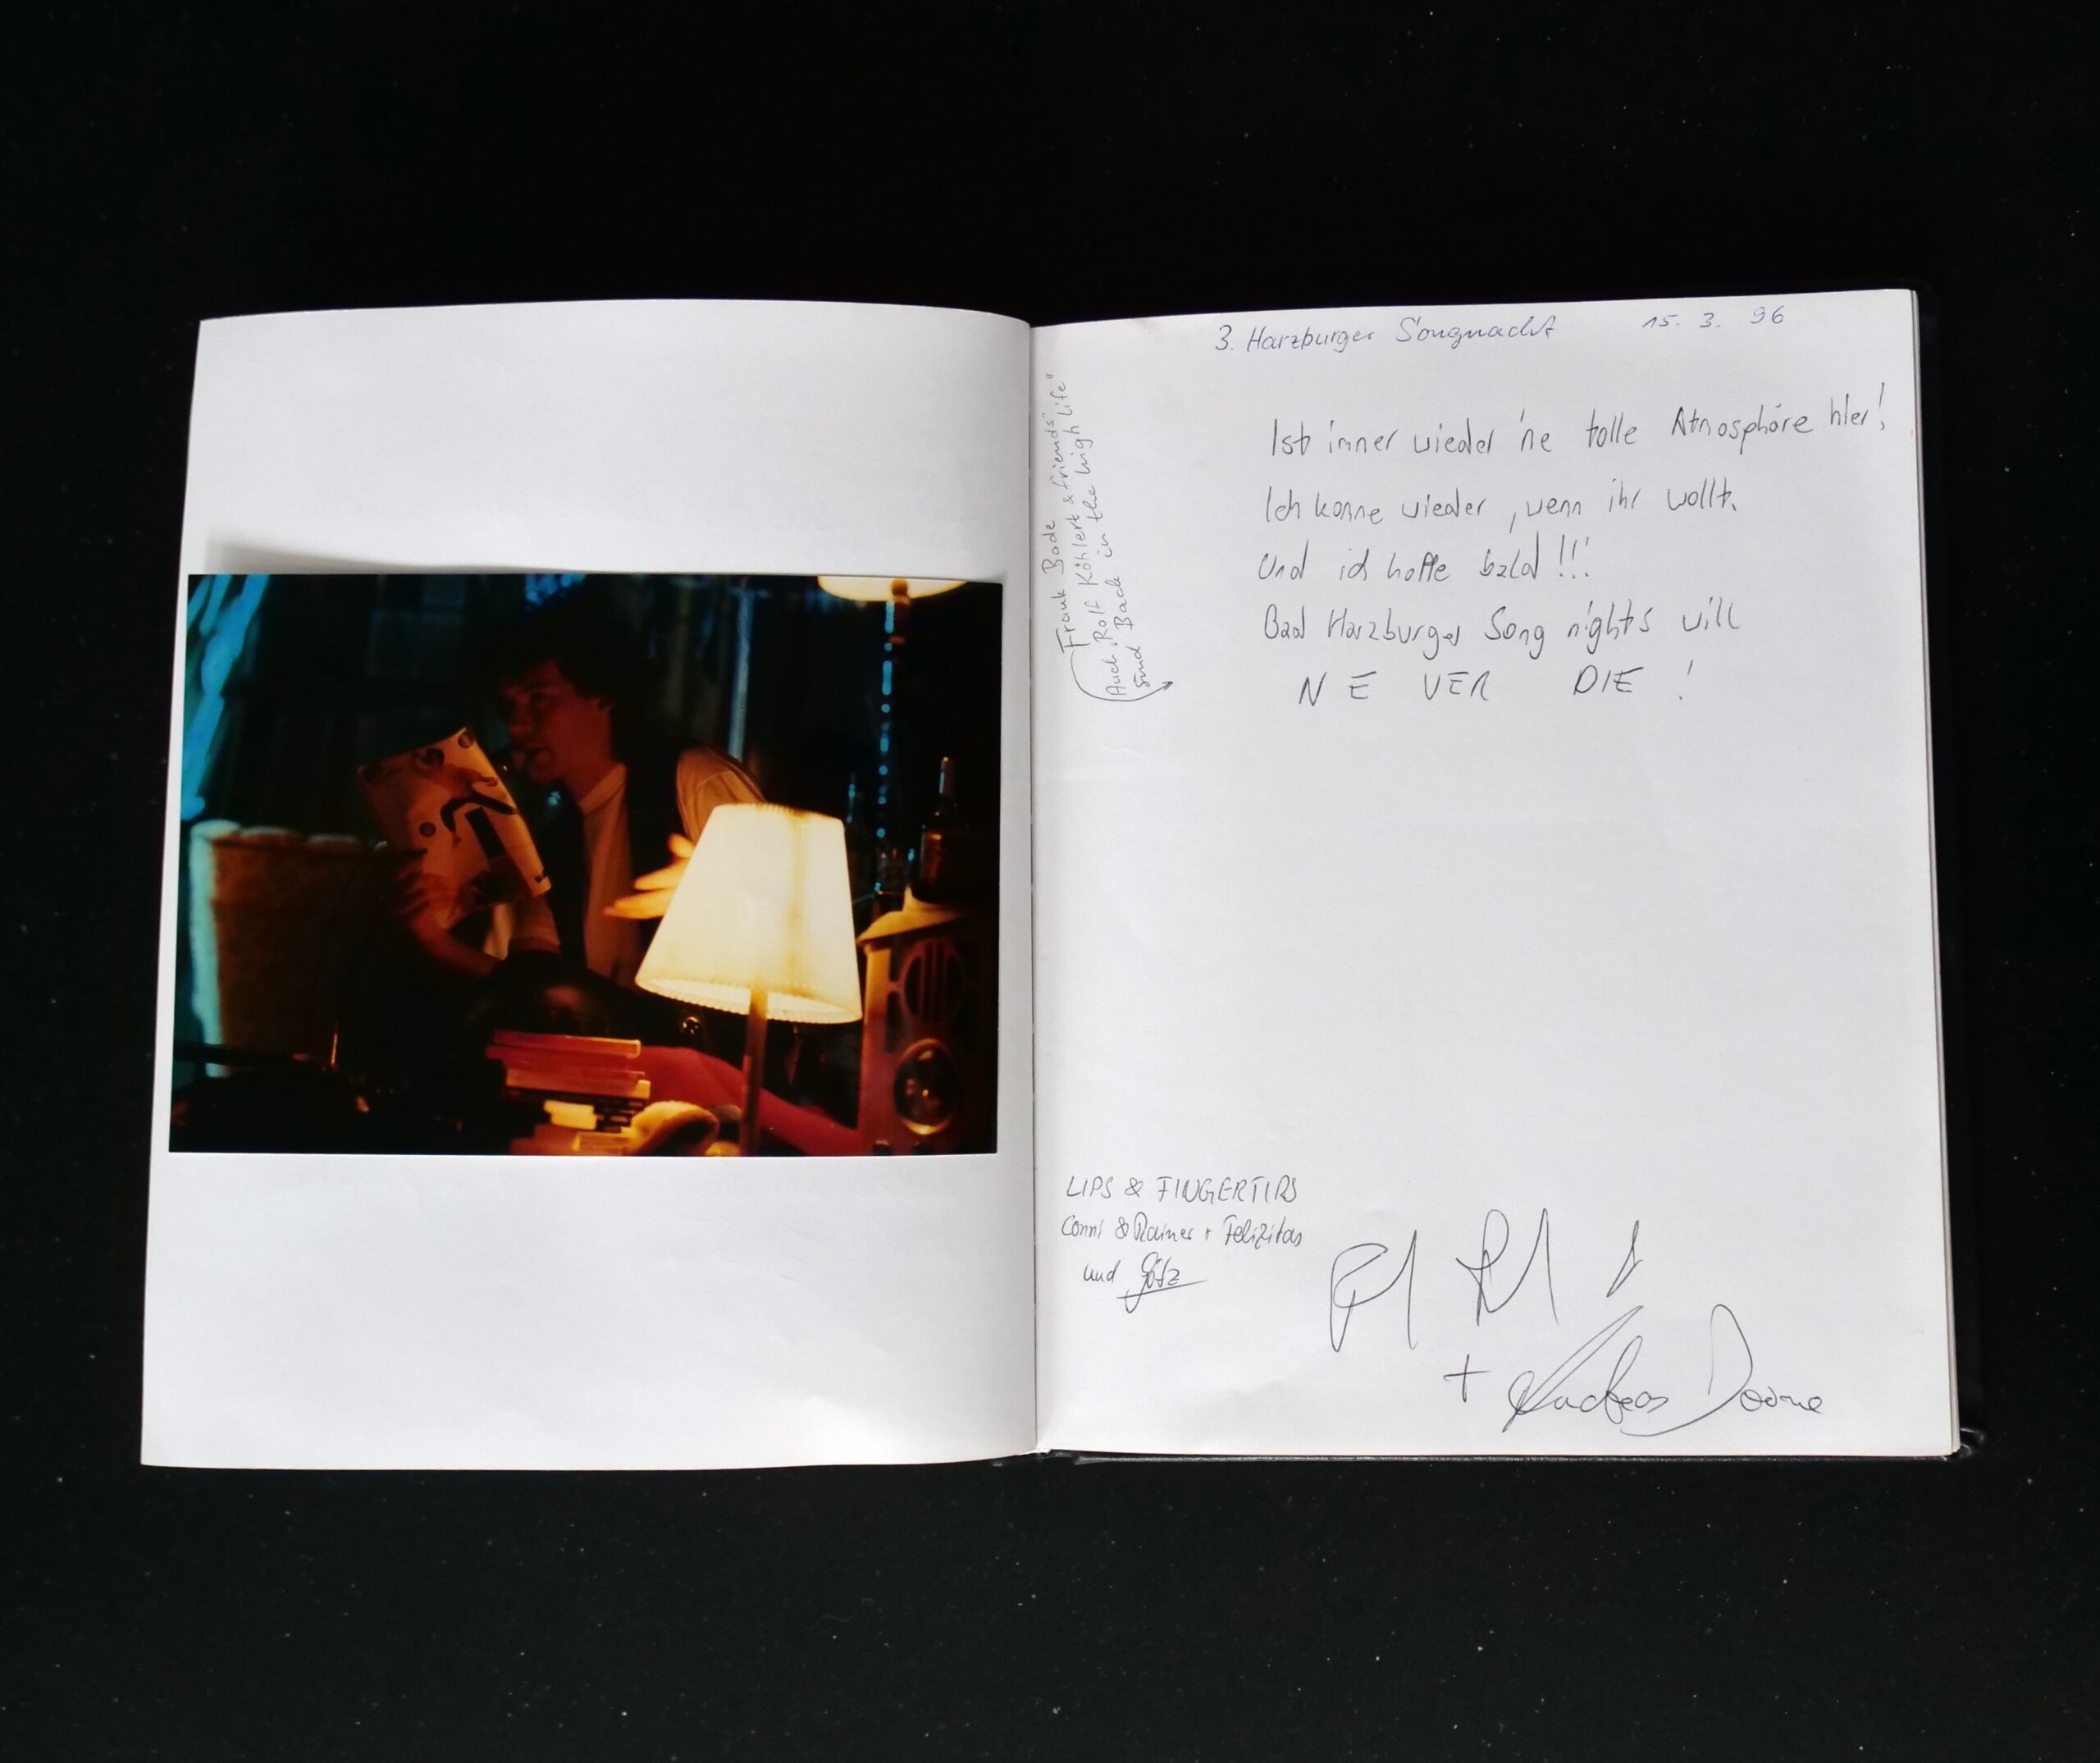 3. Harzburger Songnacht 15. 3. 96
Frank Bade
Auch "Rolf Köhlert & friends"
sind Back in the high life"
Ist immer wieder 'ne tolle Atmosphäre hier!
Ich komme wieder, wenn ihr wollt.
Und ich hoffe bald!!!
Bad Harzburger Song nights will
NEVER DIE!
LIPS & FINGERTIPS
Conni & Rainer + Felizitas
und Götz
+ Andreas